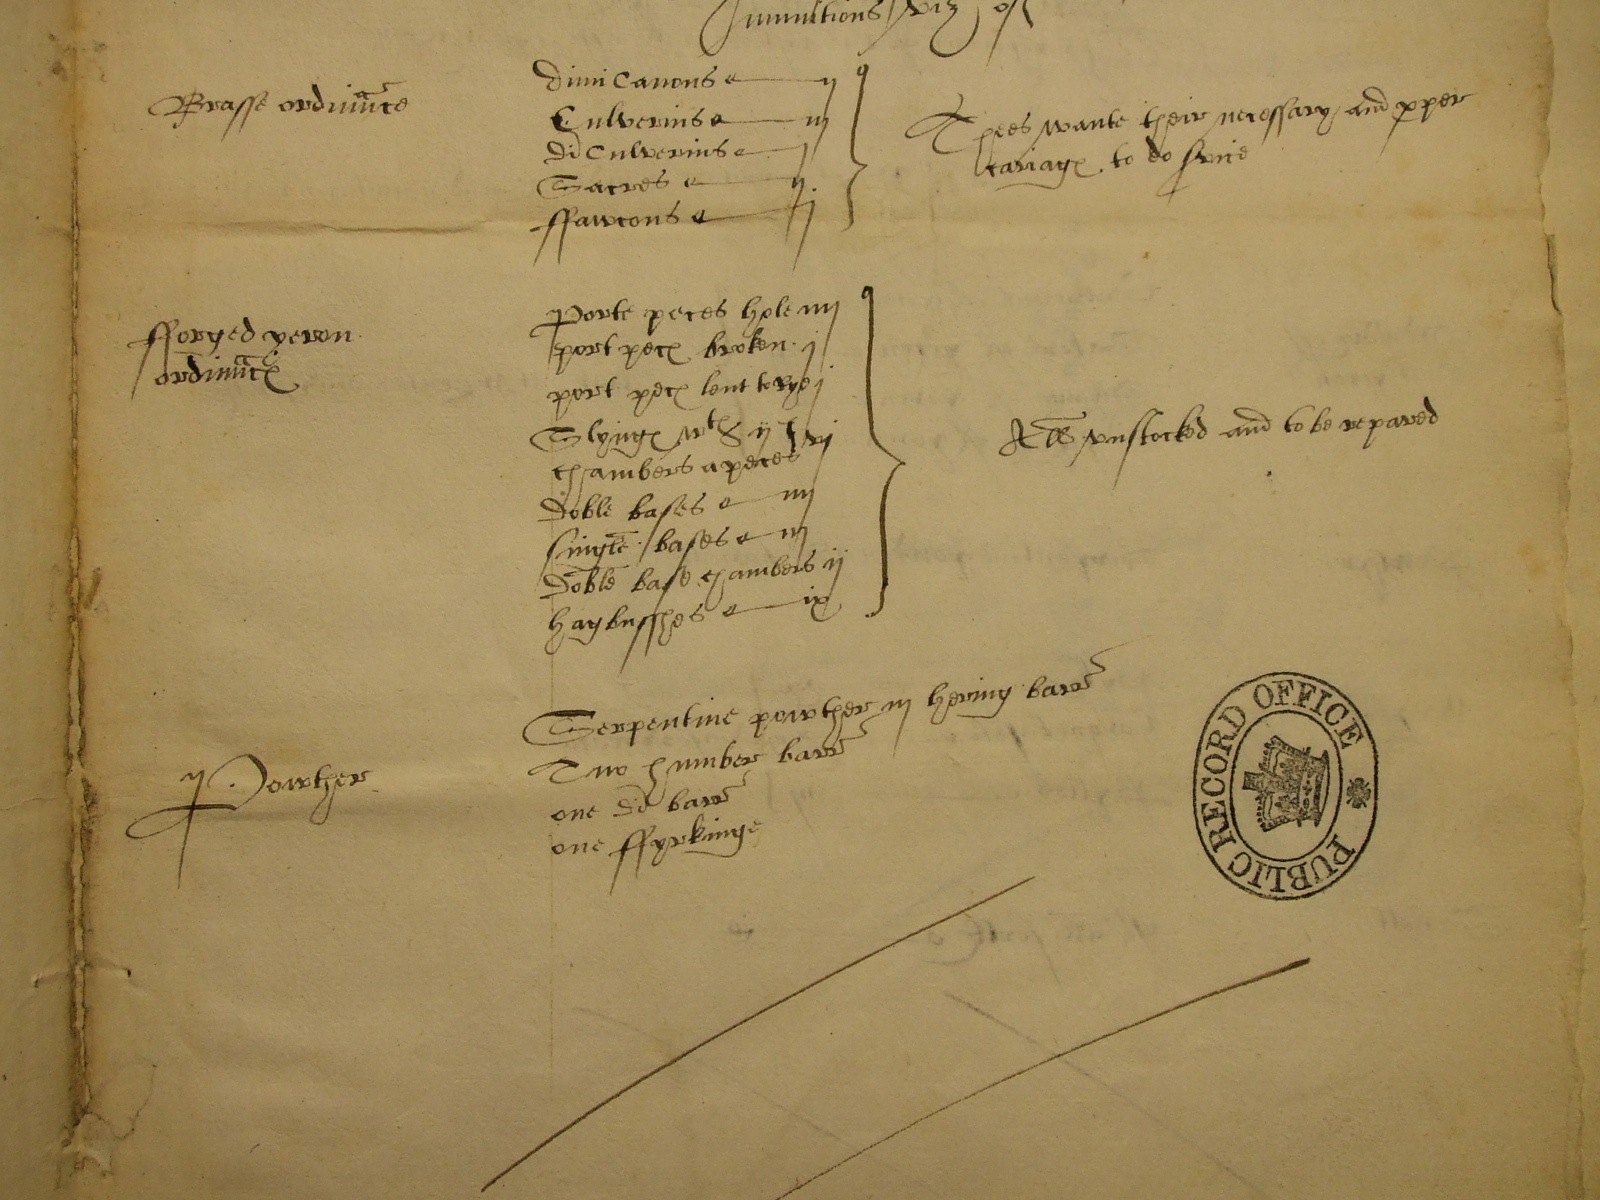 munitions viz of
Brasse ordinance
dimi Canons ij
Culverins iij
di Culverins j
Sacres ij
ffawcons ij
Thees wante their necessary and pper
cariages to do svice
fforged yeron
ordinnces
Porte peces hole iiij
port peces broken j
port peces lent to Rye j
Slynges wth ij
chambers a peces
doble bases iiij
single bases iij
doble base chambers ij
hagbusshes ix
All unstocked and to be repared
Powther
Serpentine powther iij hering barr
Two humber barr
one di barr
one ffyrkinge
PUBLIC RECORD OFFICE